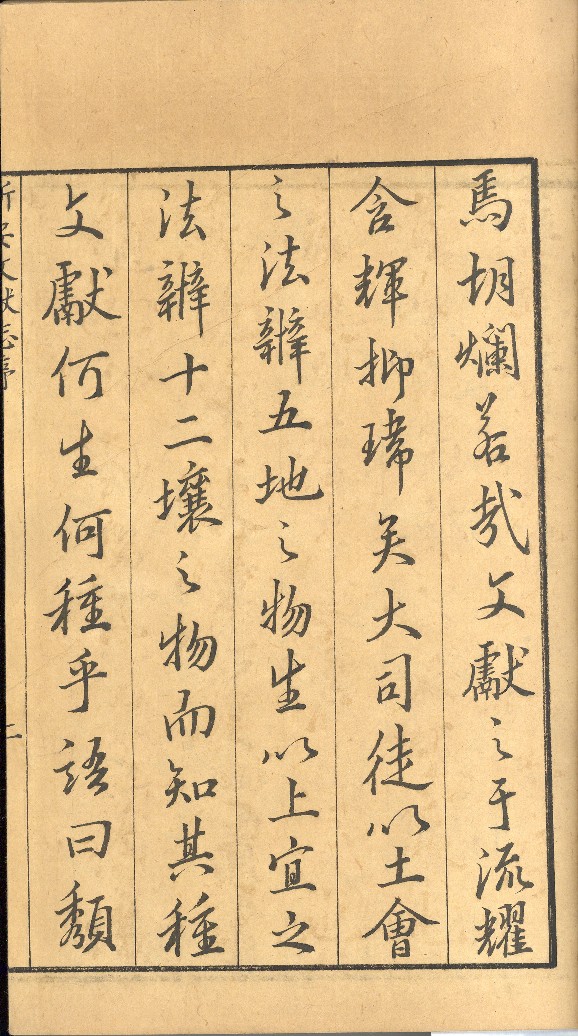 焉明爛若哉文獻之于流耀
含輝抑瑋矣大司徒以土會
之法辨五地之物生以上宜之
法辨十二壤之物而知其種
文獻何生何種乎語曰頹
新安文獻志序
二